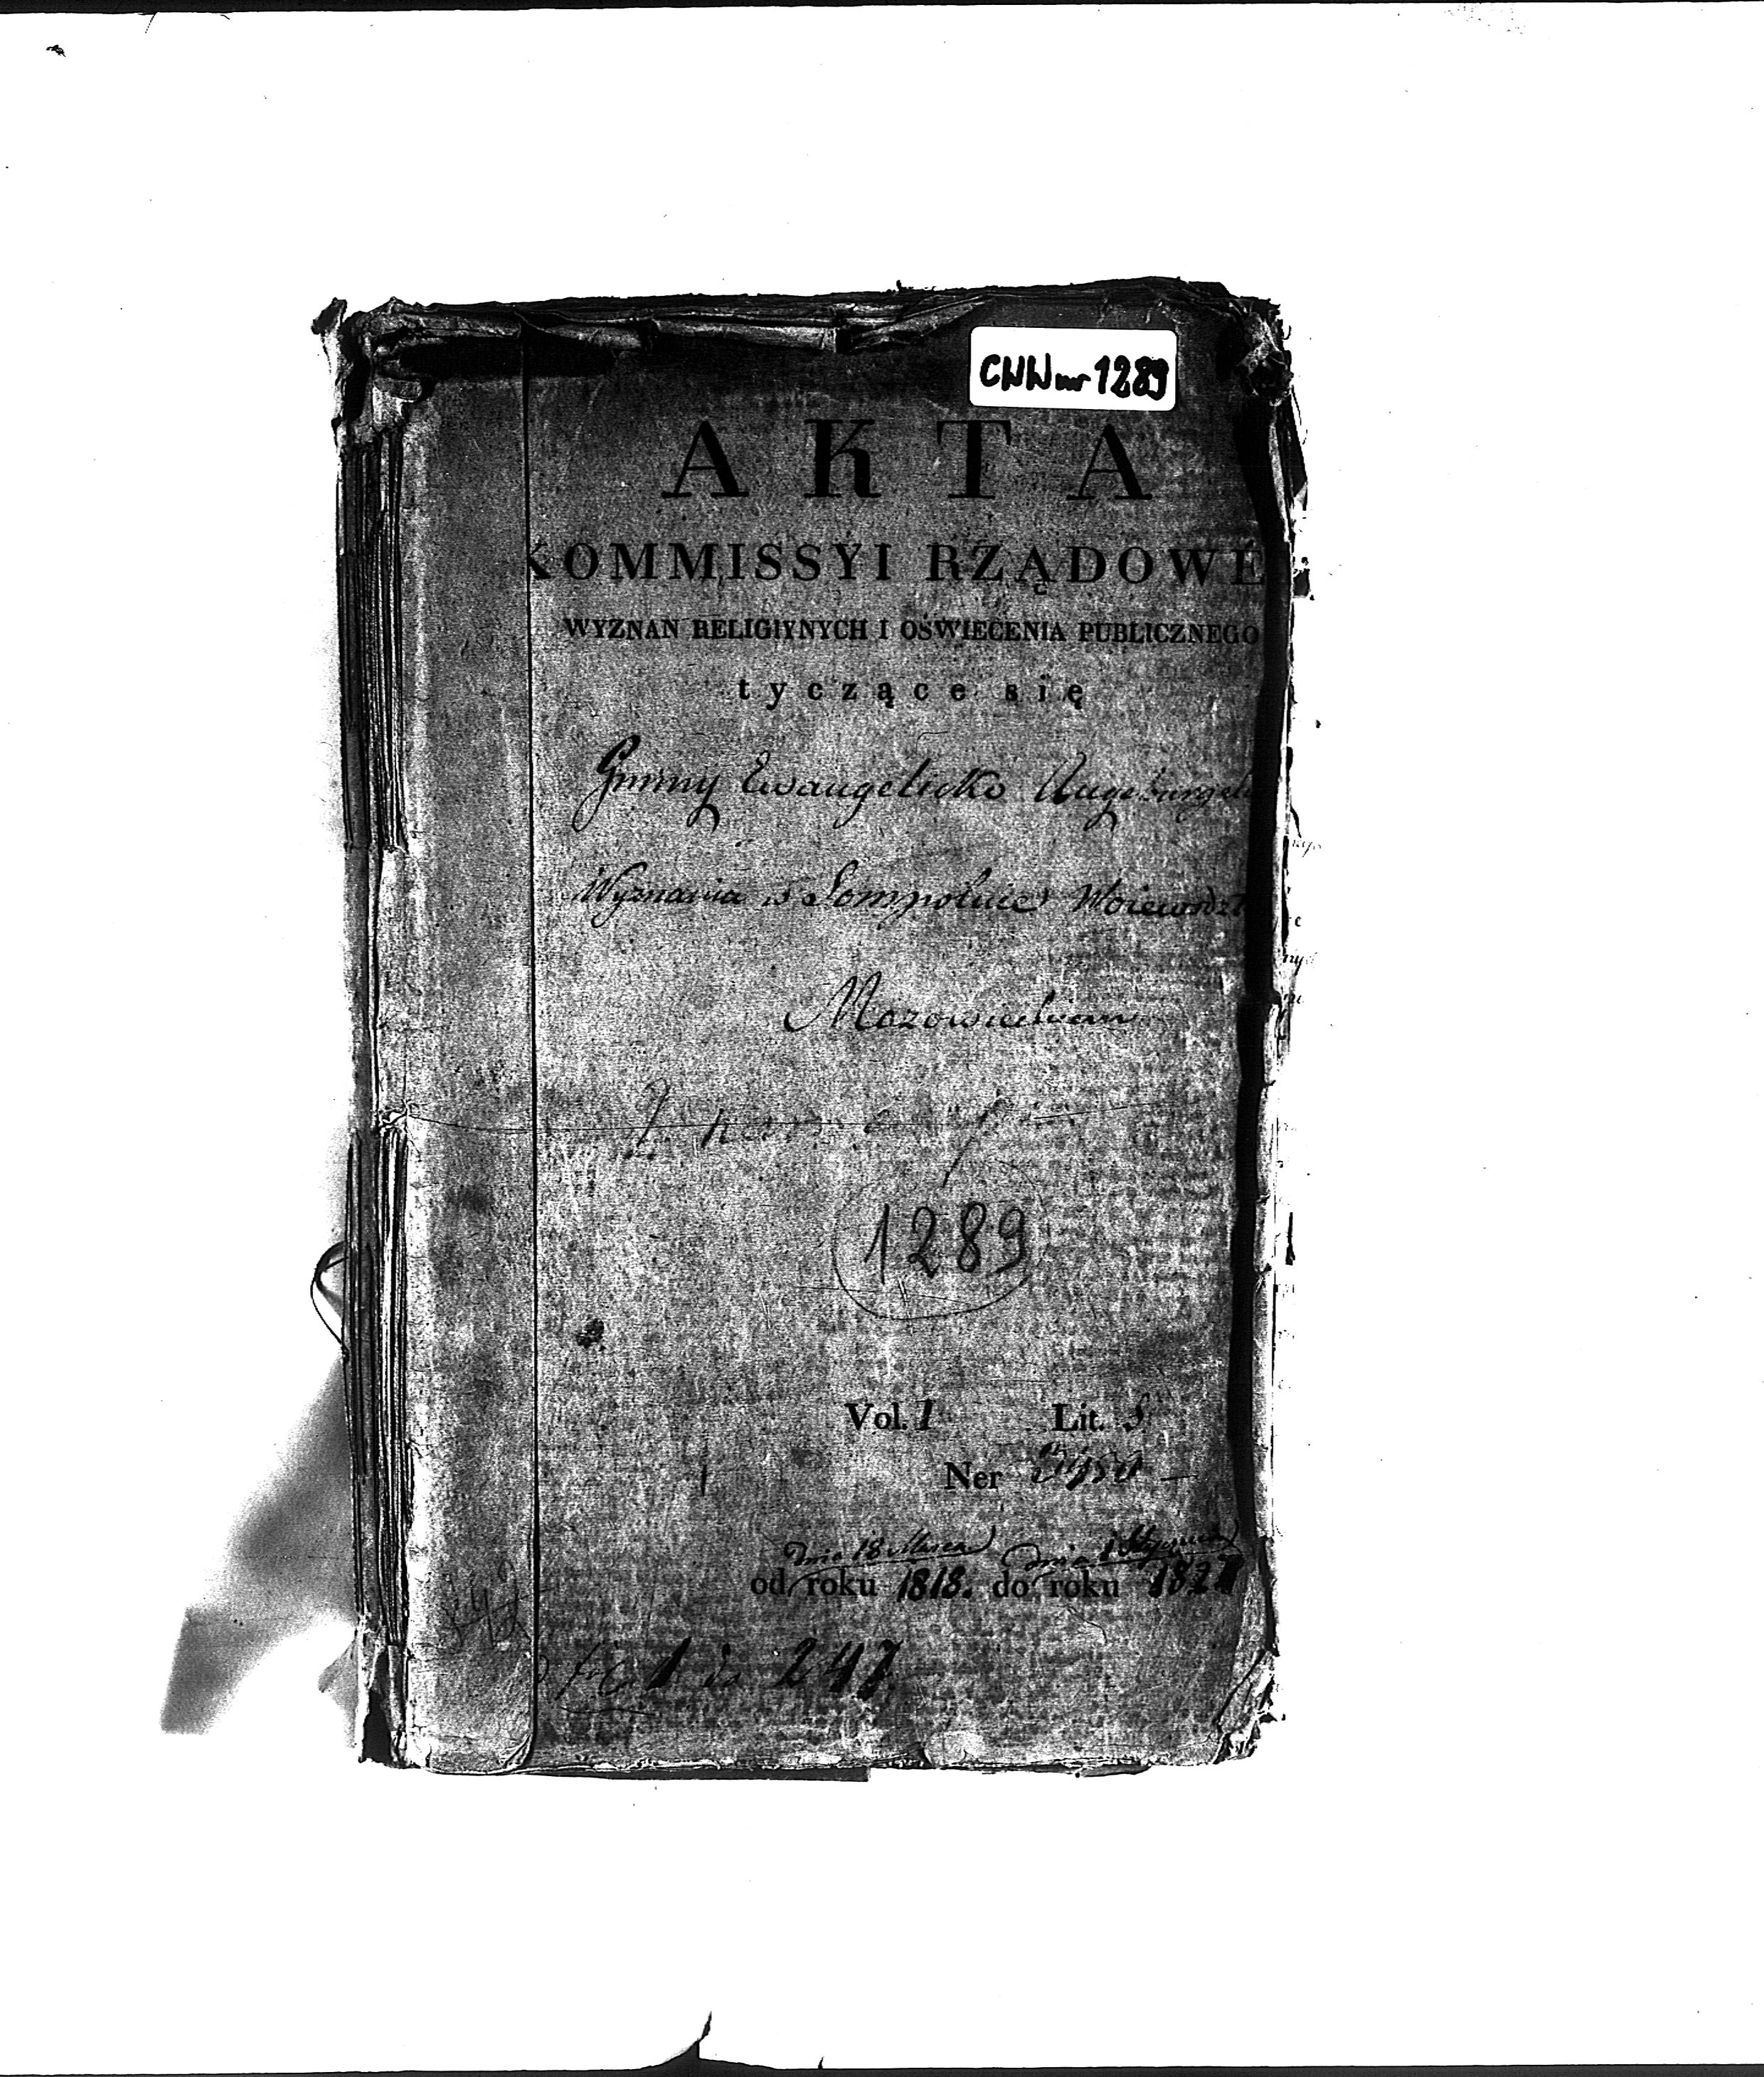 CWW nr 1289
AKTA
KOMMISSYI RZĄDOWÉ
WYZNAN RELIGIYNYCH I OŚWIECENIA PUBLICZNEGO
tyczące się
Gminy Ewangelicko Augsburgsk
Wyznania w Sompolnie Woiewodzt
Mazowieckiem
1289
Vol. 1 Lit. S.
Ner
dnia 18 Marca dnia 1 Stycznia
od roku 1818. do roku 1827
fol 1 do 247.